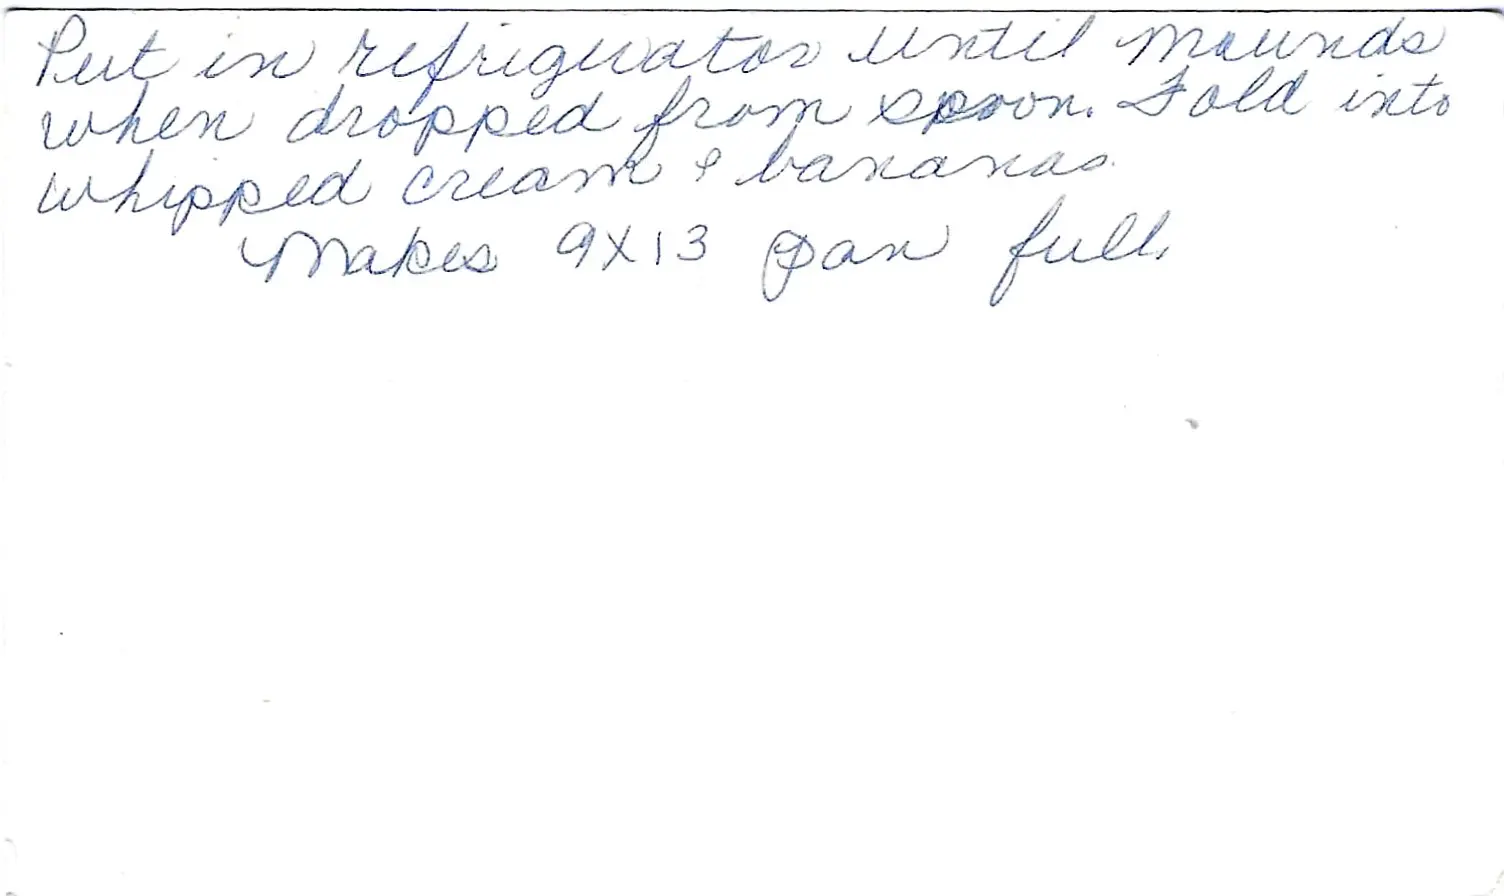 Put in refrigerator until mounds
when dropped from spoon. Fold into
whipped cream & bananas.
Makes 9X13 pan full.